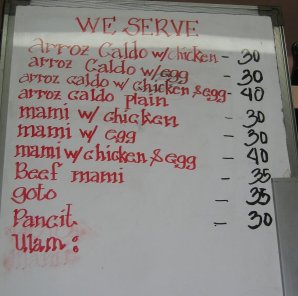 WE SERVE
Arroz Caldo w/chicken - 30
arroz Caldo w/egg - 30
arroz caldo w/ chicken & egg - 40
arroz caldo plain
mami w/ chicken - 30
mami w/ egg - 30
mami w/ chicken & egg - 40
Beef mami - 35
goto - 35
Pancit - 30
Ulam :